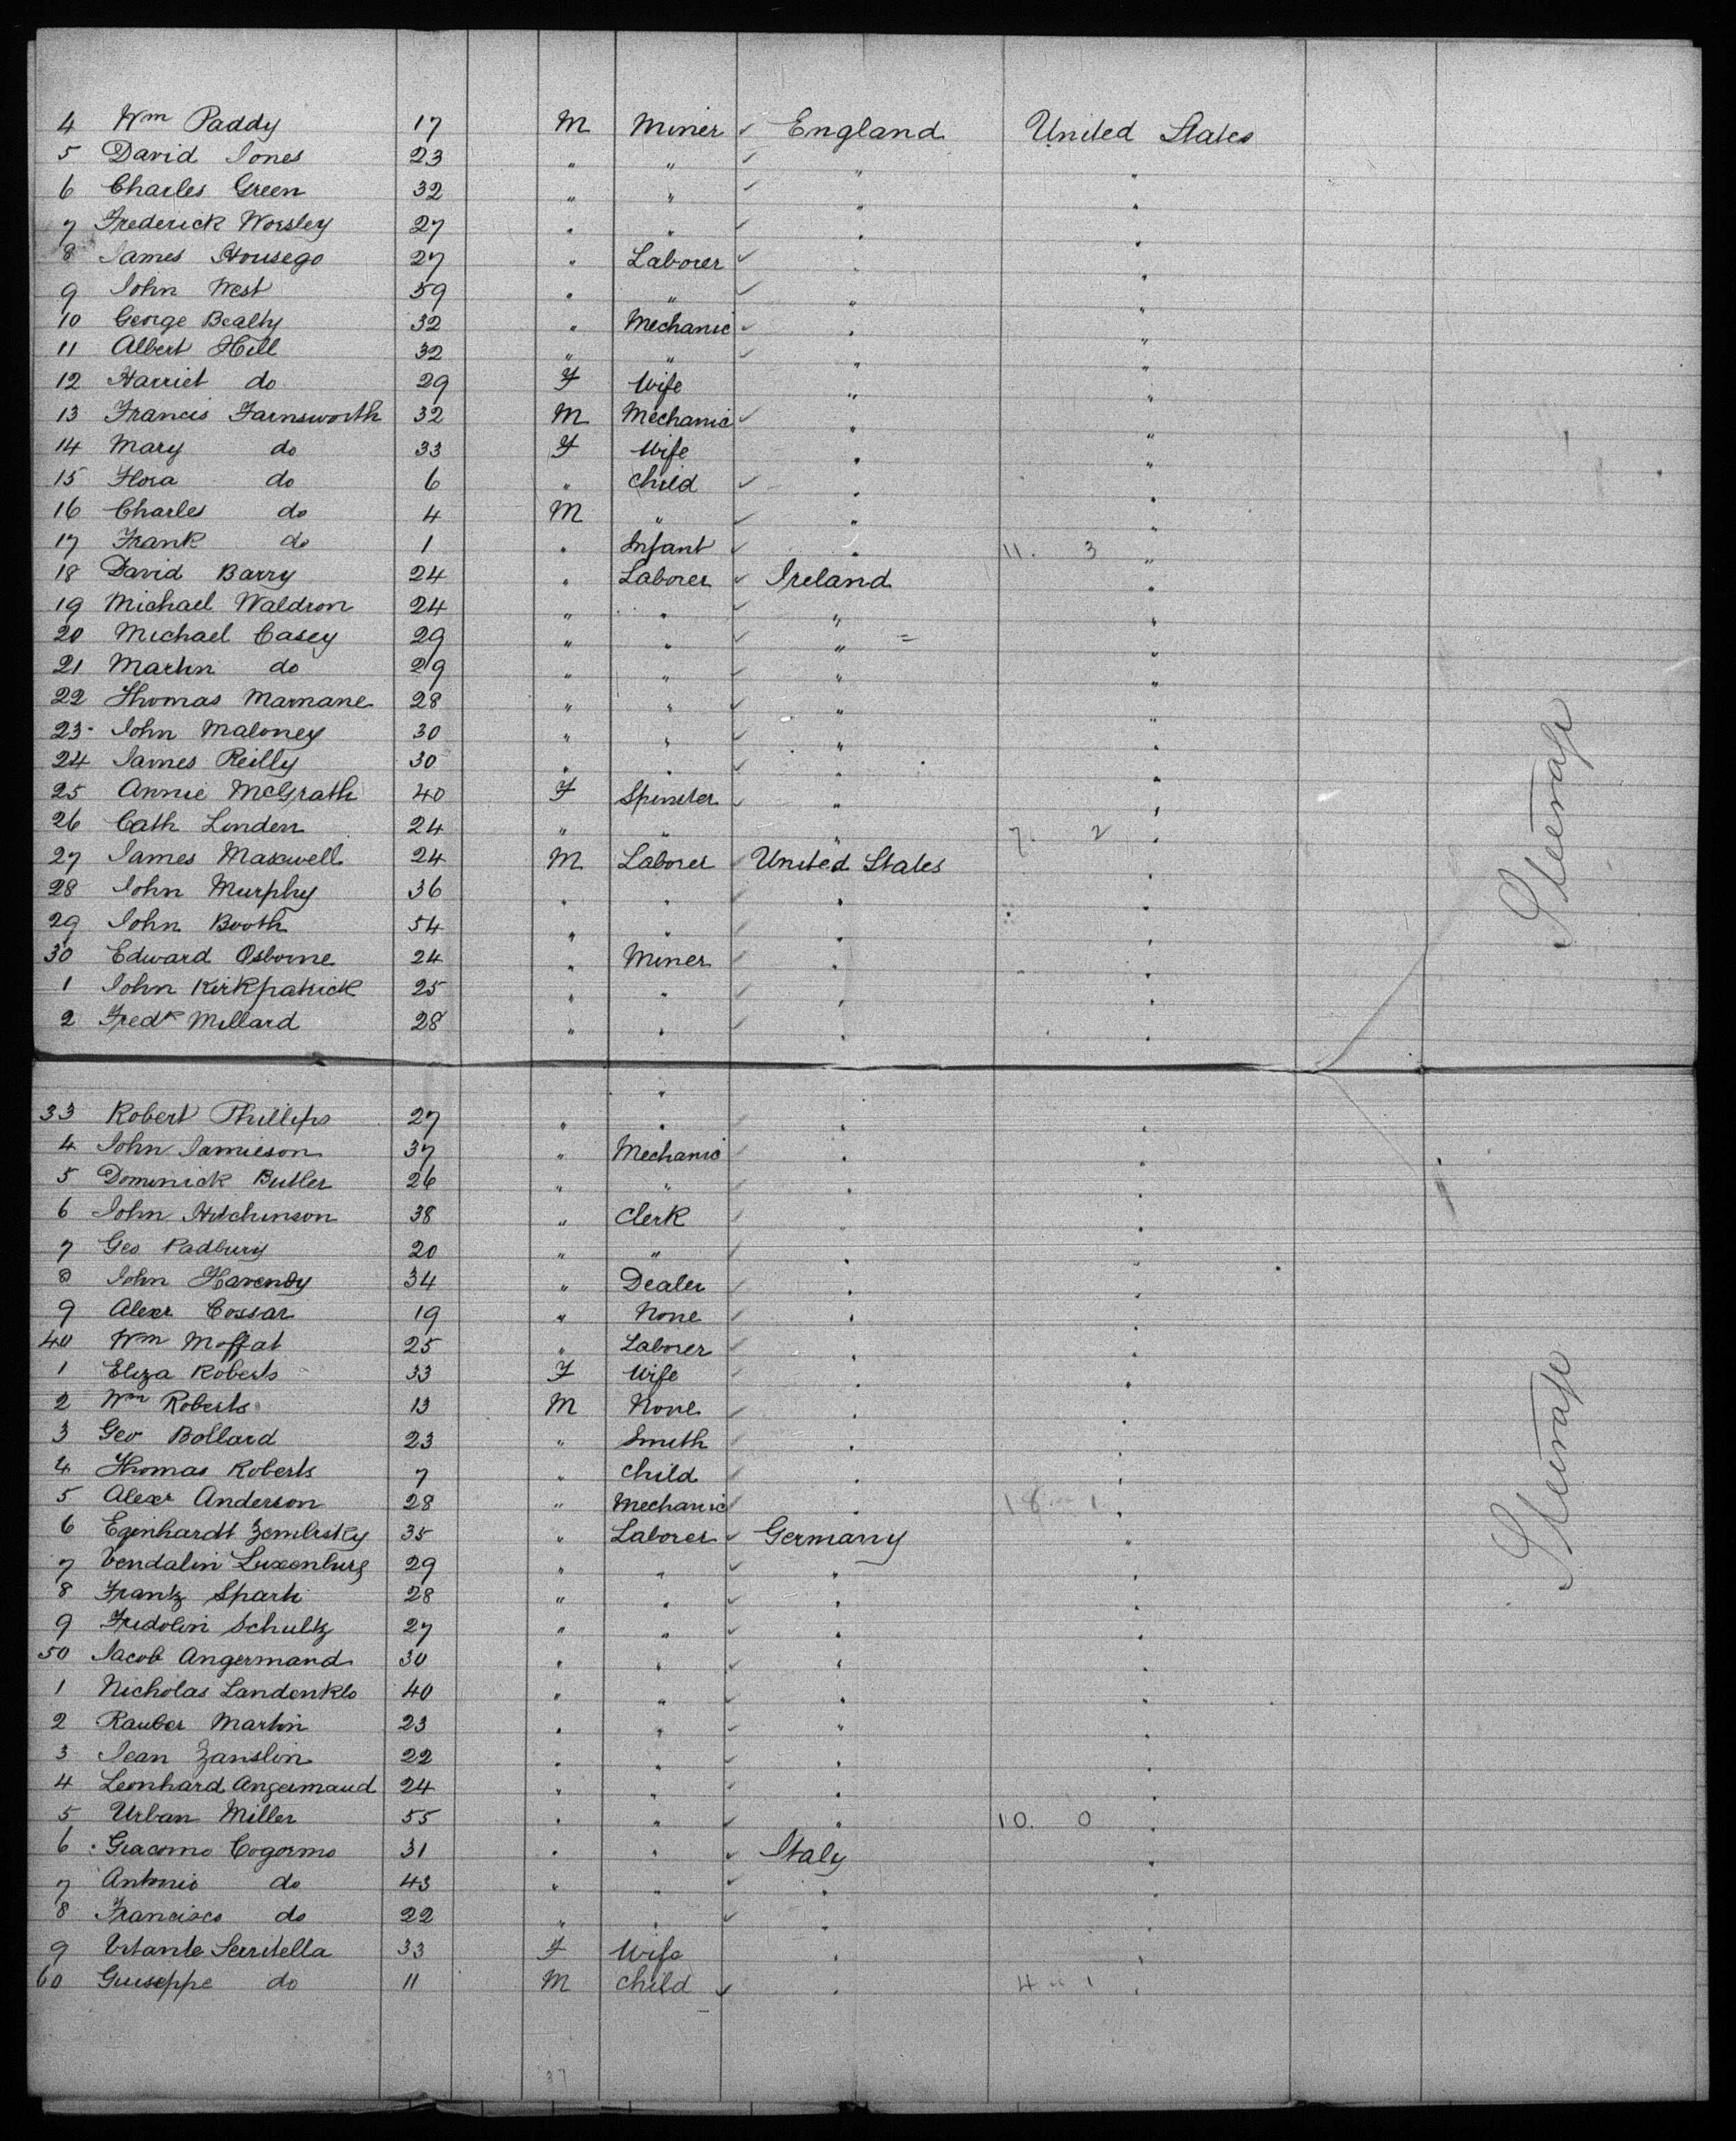 4 Wm Paddy 17 M Miner ✓ England United States
5 David Jones 23 " " ✓ " "
6 Charles Green 32 " " ✓ " "
7 Frederick Worsley 27 " " ✓ " "
8 James Housego 27 " Laborer ✓ " "
9 John West 59 " " ✓ " "
10 George Bealty 32 " Mechanic ✓ " "
11 Albert Hill 32 " " ✓ " "
12 Harriet do 29 F Wife " "
13 Francis Farnsworth 32 M Mechanic ✓ " "
14 Mary do 33 F Wife " "
15 Flora do 6 " Child ✓ " "
16 Charles do 4 M " ✓ " "
17 Frank do 1 " Infant ✓ " 11. 3 "
18 David Barry 24 " Laborer ✓ Ireland "
19 Michael Waldron 24 " " ✓ " "
20 Michael Casey 29 " " ✓ " = "
21 Martin do 29 " " ✓ " "
22 Thomas Marnane 28 " " ✓ " "
23 John Maloney 30 " " ✓ " "
24 James Reilly 30 " " ✓ " "
25 Annie McGrath 40 F Spinster ✓ " "
26 Cath Linden 24 " " " 7. 2 "
27 James Maxwell 24 M Laborer ✓ United States "
28 John Murphy 36 " " ✓ " "
29 John Booth 54 " " ✓ " "
30 Edward Osborne 24 " Miner ✓ " "
1 John Kirkpatrick 25 " " ✓ " "
2 Fredk Millard 28 " " ✓ " "
Steerage
"
33 Robert Phillips 27 " " ✓ " "
4 John Jamieson 37 " Mechanic ✓ " "
5 Dominick Butler 26 " " ✓ " "
6 John Hitchinson 38 " Clerk ✓ " "
7 Geo Padbury 20 " " ✓ " "
8 John Havendy 34 " Dealer ✓ " "
9 Alexr Cossar 19 " None ✓ " "
40 Wm Moffat 25 " Laborer ✓ " "
1 Eliza Roberts 33 F Wife " "
2 Wm Roberts 13 M None ✓ " "
3 Geo Bollard 23 " Smith ✓ " "
4 Thomas Roberts 7 " Child ✓ " "
5 Alexr Anderson 28 " Mechanic ✓ " 18 1 "
6 Egenhardt Zemlisky 35 " Laborer ✓ Germany "
7 Vendalin Luxenburg 29 " " ✓ " "
8 Frantz Sparti 28 " " ✓ " "
9 Fridolin Schultz 27 " " ✓ " "
50 Jacob Angermand 30 " " ✓ " "
1 Nicholas Landenklo 40 " " ✓ " "
2 Rauber Martin 23 " " ✓ " "
3 Jean Zanslin 22 " " ✓ " "
4 Leonhard Angermaud 24 " " ✓ " "
5 Urban Miller 55 " " ✓ " 10. 0 "
6 Giacomo Cogormo 31 " " ✓ Italy "
7 Antonio do 43 " " ✓ " "
8 Francisco do 22 " " ✓ " "
9 Serritella 33 F Wife " "
60 Guiseppe do 11 M Child ✓ " 4 1 "
Steerage
37